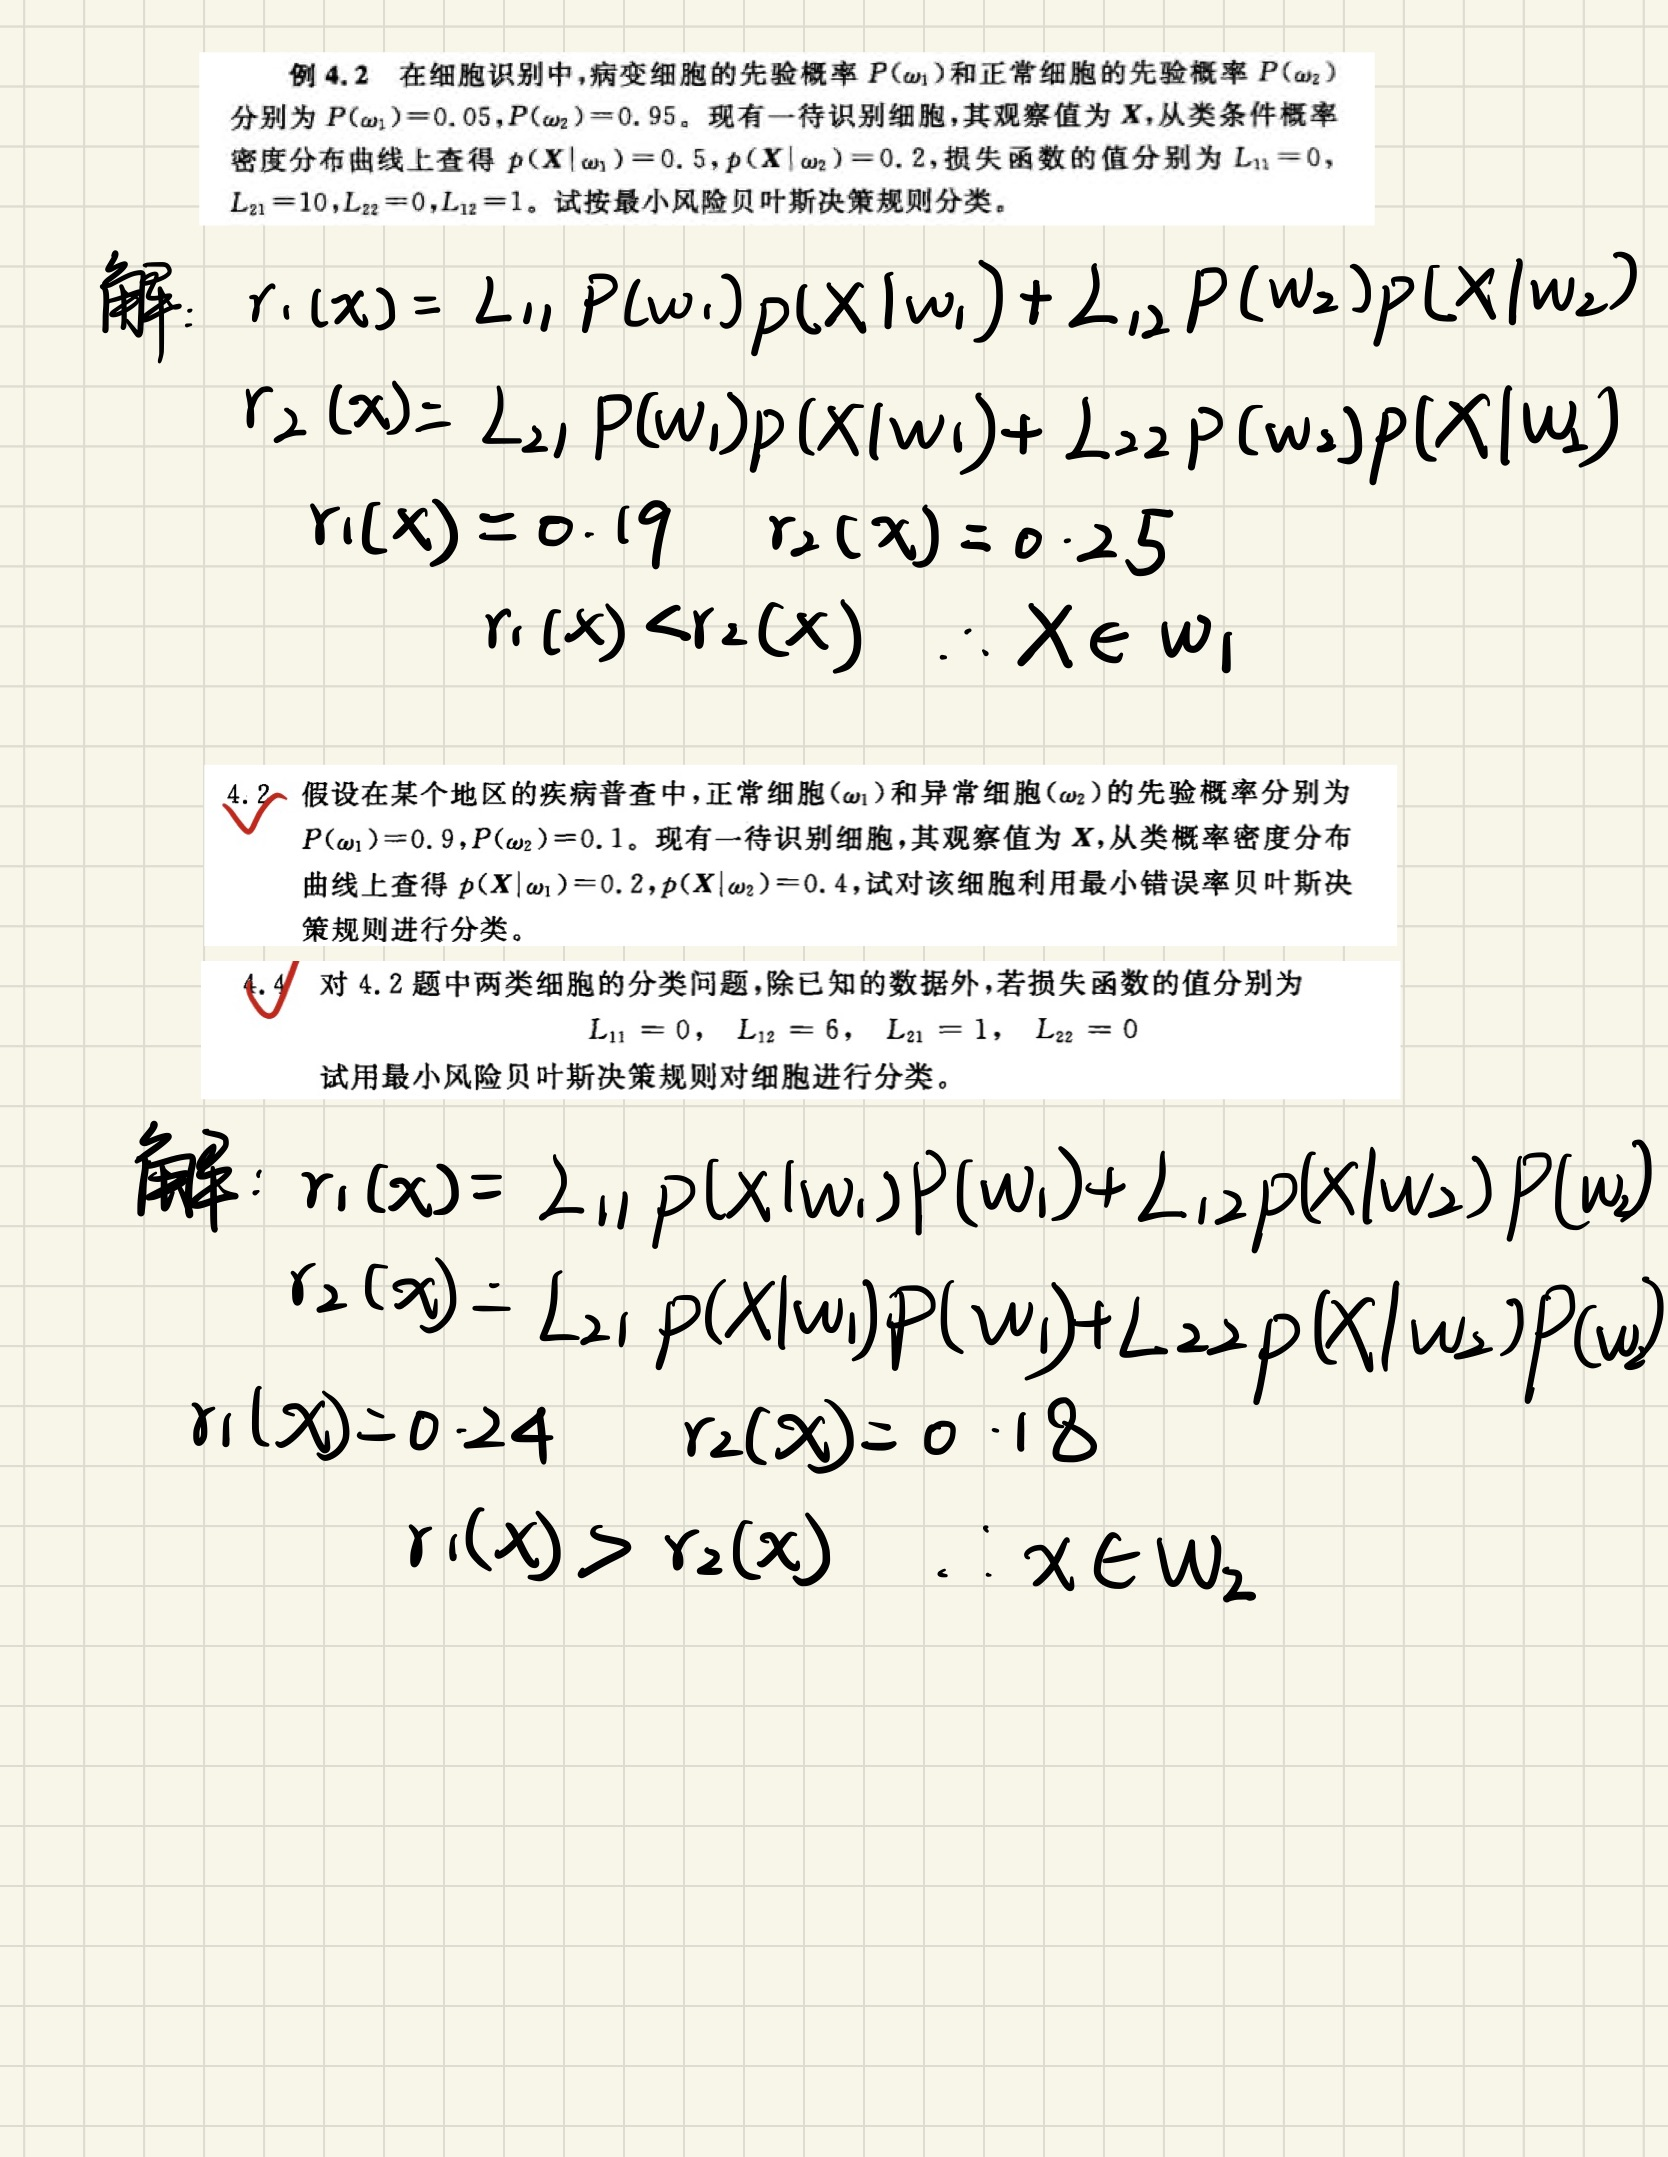 例 4.2 在细胞识别中,病变细胞的先验概率 P(ω₁)和正常细胞的先验概率 P(ω₂)
分别为 P(ω₁)=0.05,P(ω₂)=0.95。现有一待识别细胞,其观察值为 X,从类条件概率
密度分布曲线上查得 p(X|ω₁)=0.5,p(X|ω₂)=0.2,损失函数的值分别为 L₁₁=0,
L₂₁=10,L₂₂=0,L₁₂=1。试按最小风险贝叶斯决策规则分类。
解: r₁(x) = L₁₁ P(w₁)p(X|w₁) + L₁₂ P(w₂)p(X|w₂)
r₂(x) = L₂₁ P(w₁)p(X|w₁) + L₂₂ p(w₂)p(X|w₂)
r₁(x) = 0.19 r₂(x) = 0.25
r₁(x) < r₂(x) ∴ X ∈ w₁
4.2 假设在某个地区的疾病普查中,正常细胞(ω₁)和异常细胞(ω₂)的先验概率分别为
P(ω₁)=0.9,P(ω₂)=0.1。现有一待识别细胞,其观察值为 X,从类概率密度分布
曲线上查得 p(X|ω₁)=0.2,p(X|ω₂)=0.4,试对该细胞利用最小错误率贝叶斯决
策规则进行分类。
4.4 对 4.2 题中两类细胞的分类问题,除已知的数据外,若损失函数的值分别为
L₁₁ = 0, L₁₂ = 6, L₂₁ = 1, L₂₂ = 0
试用最小风险贝叶斯决策规则对细胞进行分类。
解: r₁(x) = L₁₁ p(X|w₁)P(w₁) + L₁₂ p(X|w₂) P(w₂)
r₂(x) = L₂₁ p(X|w₁)P(w₁) + L₂₂ p(X|w₂)P(w₂)
r₁(x) = 0.24 r₂(x) = 0.18
r₁(x) > r₂(x) ∴ x ∈ w₂